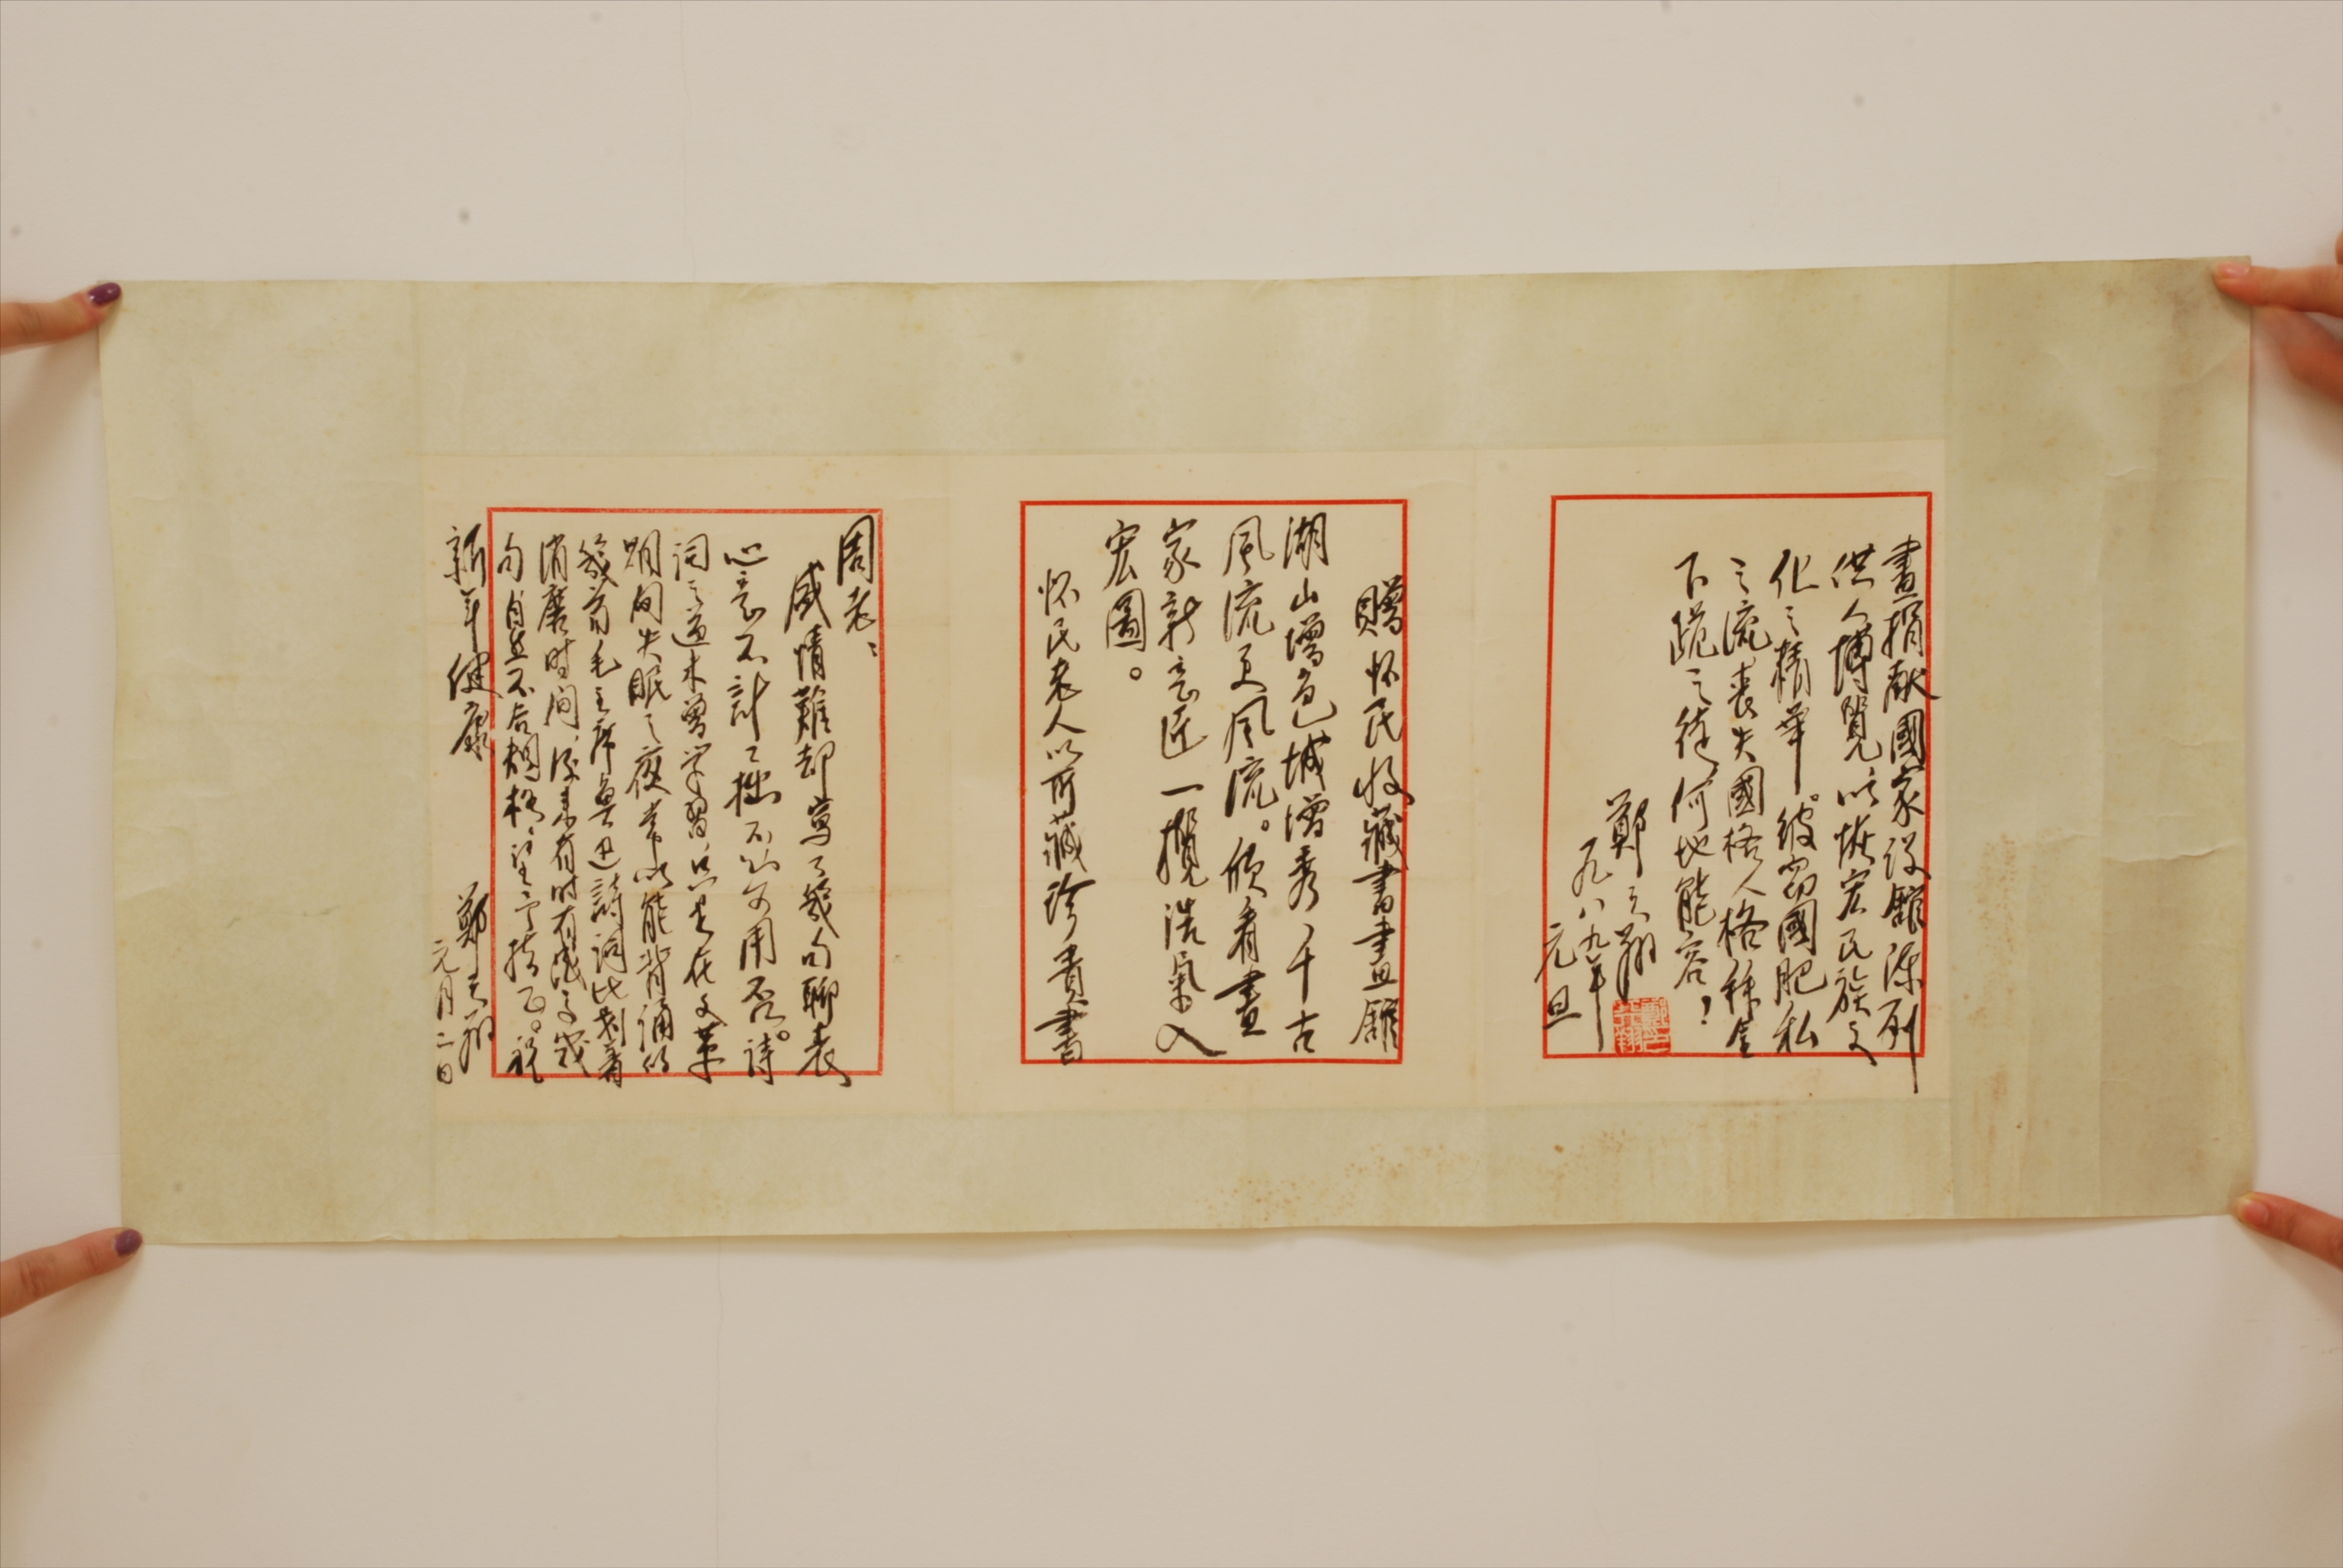 周老：
感情難却寫了幾句聊表
心意不計工拙不知可用否。詩
词之道未曾学習只是在文革
期间失眠之夜常以能背诵的
幾首毛主席魯迅詩词比划着
消磨时间後来有时有感寫幾
句自然不合规格望予指正。祝
新年健康
鄭之翔
元月二日
贈怀民收藏書畫館
湖山增色城增秀，千古
風流更風流。欣看畫
家新意匠一攬浩氣入
宏圖。
怀民老人以所藏珍貴書
畫捐献國家设館陈列
供人博覽以恢宏民族文
化之精華。彼窃國肥私
之流丧失國格人格拜金
下跪之徒何地能容！
鄭之翔
一九八九年
元旦